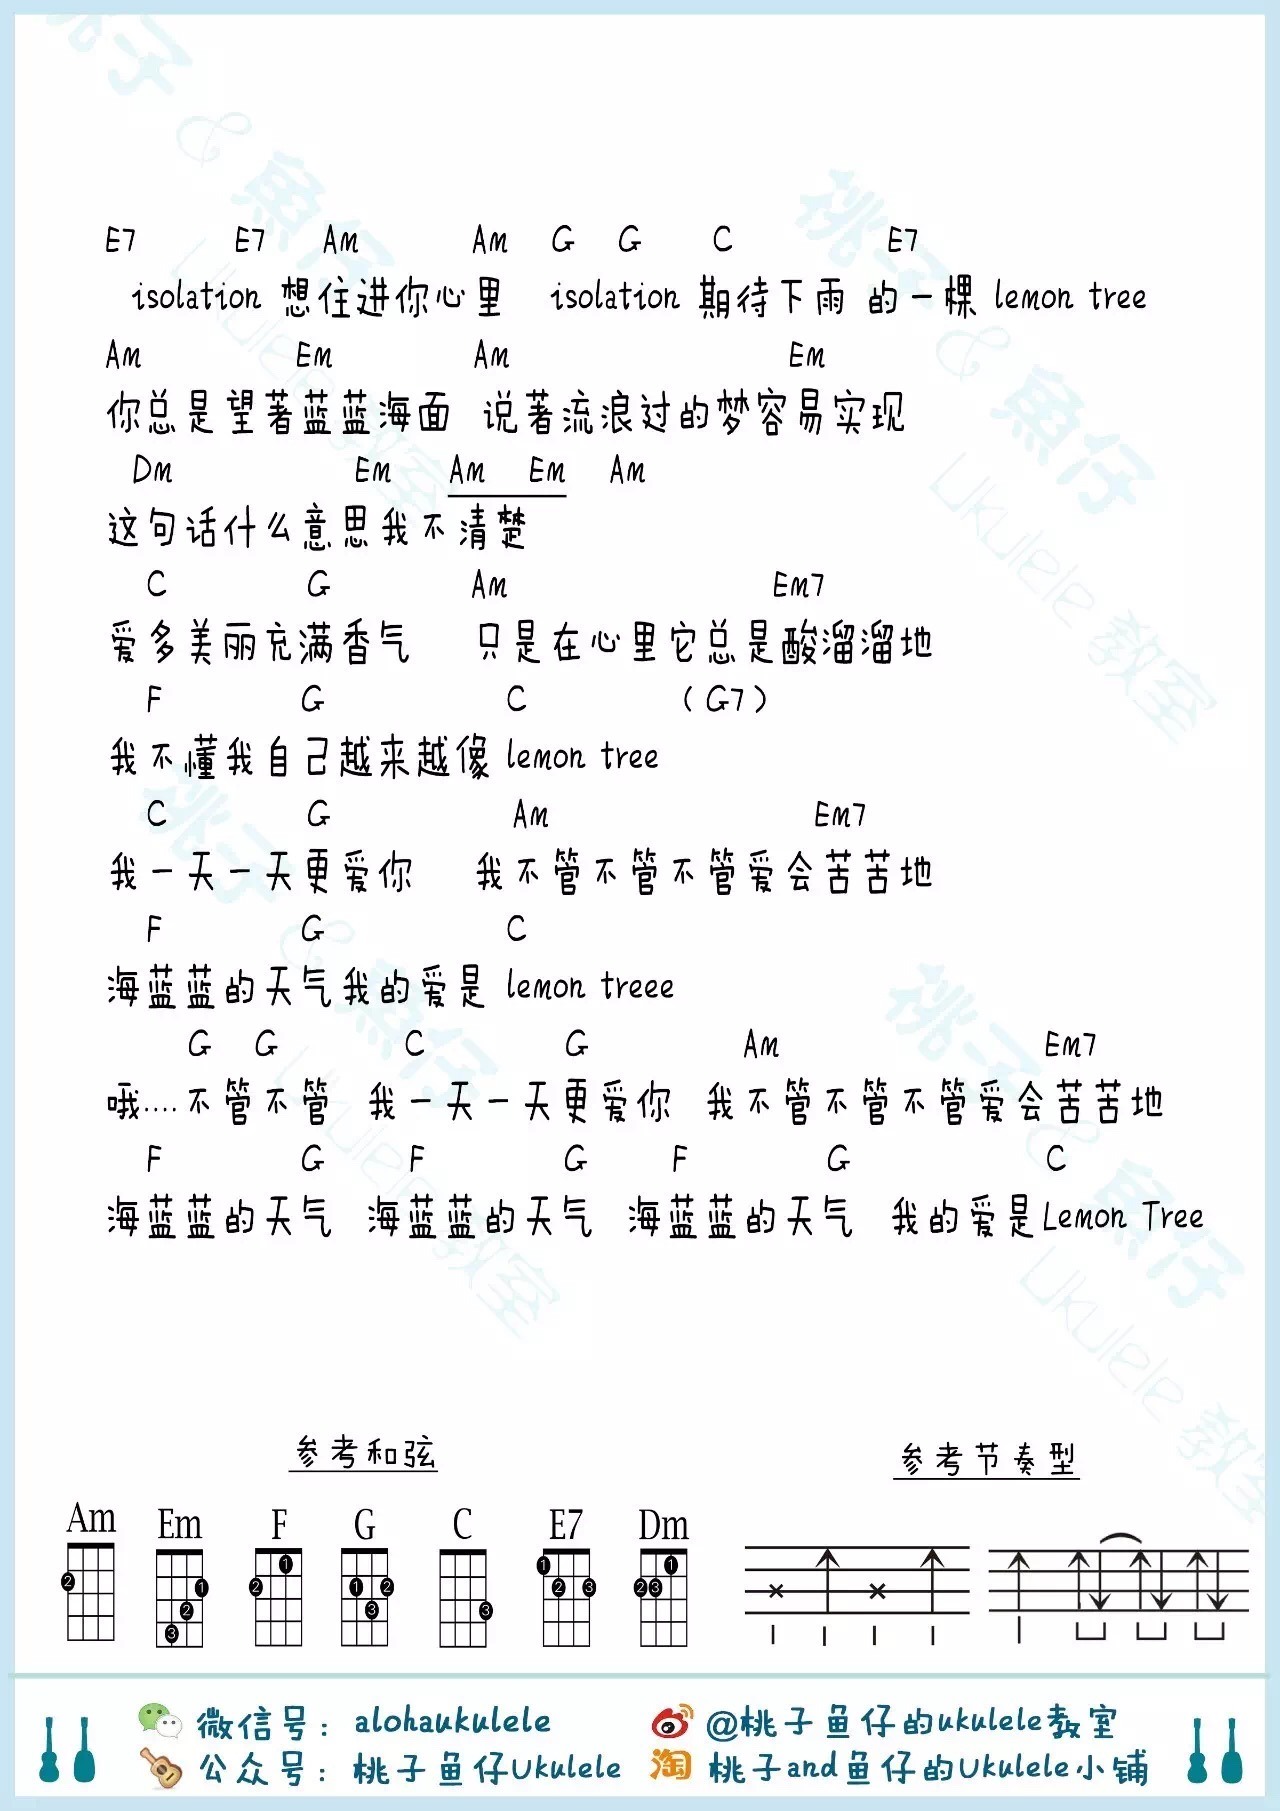 E7 E7 Am Am G G C E7
isolation 想住进你心里 isolation 期待下雨 的一棵 lemon tree
Am Em Am Em
你总是望著蓝蓝海面 说著流浪过的梦容易实现
Dm Em Am Em Am
这句话什么意思我不清楚
C G Am Em7
爱多美丽充满香气 只是在心里它总是酸溜溜地
F G C (G7)
我不懂我自己越来越像 lemon tree
C G Am Em7
我一天一天更爱你 我不管不管不管爱会苦苦地
F G C
海蓝蓝的天气我的爱是 lemon treee
G G C G Am Em7
哦....不管不管 我一天一天更爱你 我不管不管不管爱会苦苦地
F G F G F G C
海蓝蓝的天气 海蓝蓝的天气 海蓝蓝的天气 我的爱是Lemon Tree
参考和弦 参考节奏型
Am Em F G C E7 Dm
微信号：alohaukulele @桃子鱼仔的ukulele教室
公众号：桃子鱼仔Ukulele 淘 桃子and鱼仔的Ukulele小铺
桃子 & 魚仔
Ukulele 教室
桃子 & 魚仔
Ukulele 教室
桃子 & 魚仔
Ukulele 教室
桃子 & 魚仔
Ukulele 教室